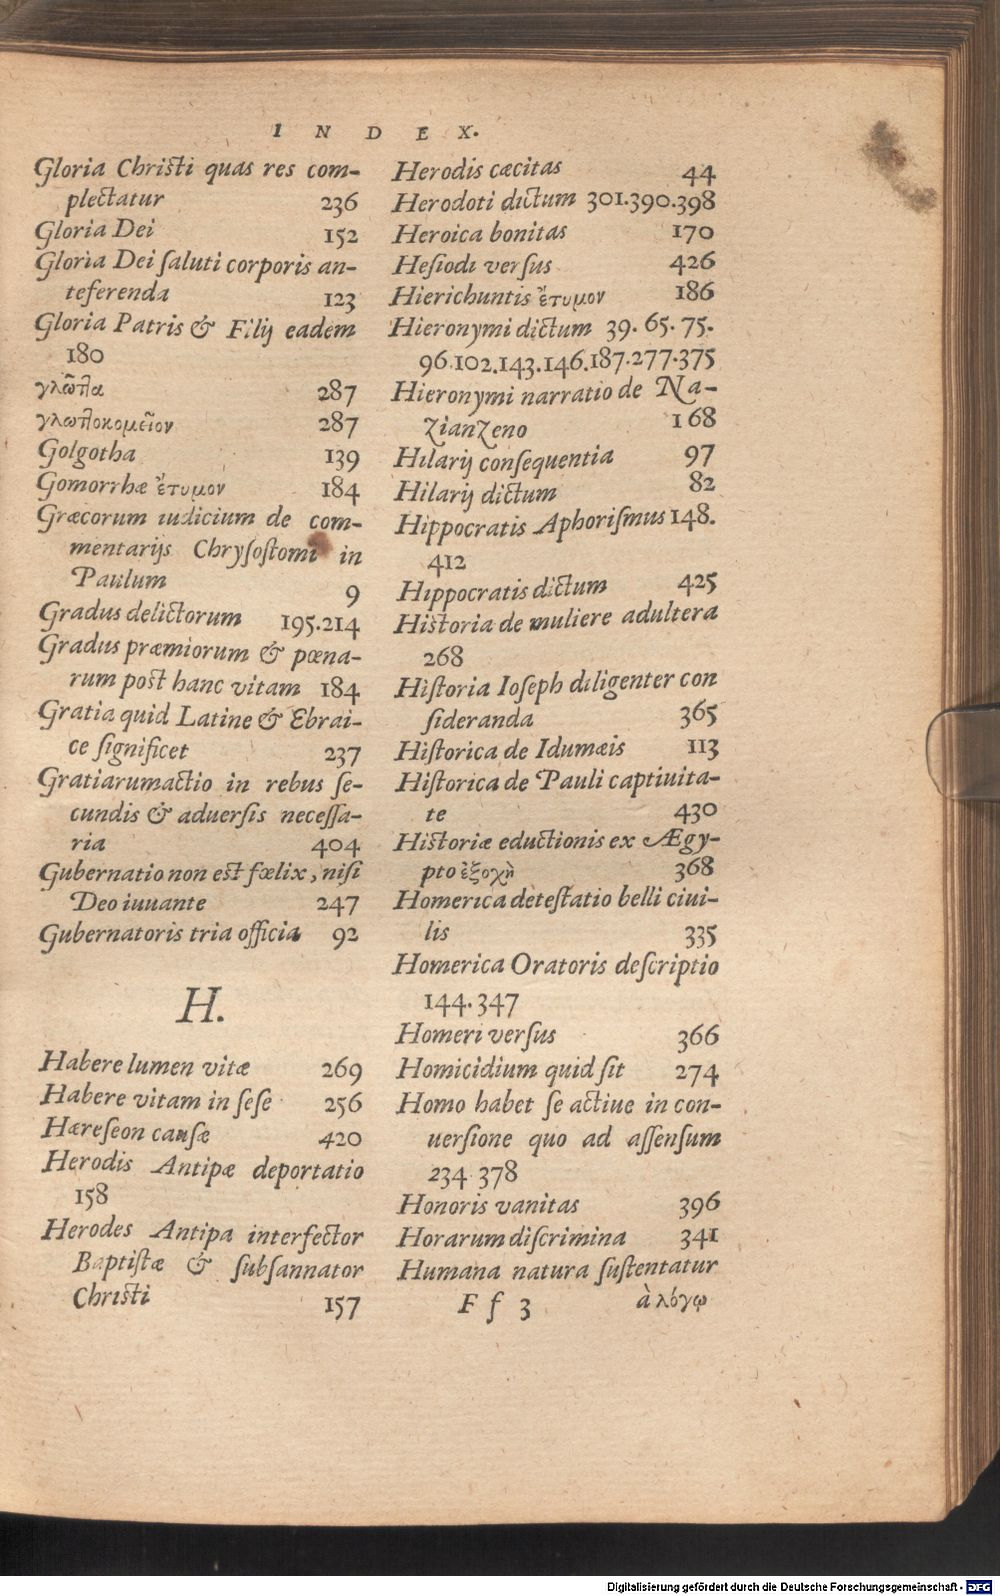 INDEX.
Gloria Christi quas res com-
plectatur 236
Gloria Dei 152
Gloria Dei ſaluti corporis an-
teferenda 123
Gloria Patris & Filij eadem
180
γλῶττα 287
γλωττοκομεῖον 287
Golgotha 139
Gomorrhæ ἔτυμον 184
Græcorum iudicium de com-
mentarijs Chryſoſtomi in
Paulum 9
Gradus delictorum 195.214
Gradus præmiorum & pœna-
rum poſt hanc vitam 184
Gratia quid Latine & Ebrai-
ce ſignificet 237
Gratiarumactio in rebus ſe-
cundis & aduerſis neceſſa-
ria 404
Gubernatio non eſt fœlix, niſi
Deo iuuante 247
Gubernatoris tria officia 92
H.
Habere lumen vitæ 269
Habere vitam in ſeſe 256
Hæreſeon cauſæ 420
Herodis Antipæ deportatio
158
Herodes Antipa interfector
Baptiſtæ & ſubſannator
Chriſti 157
Herodis cæcitas 44
Herodoti dictum 301.390.398
Heroica bonitas 170
Heſiodi verſus 426
Hierichuntis ἔτυμον 186
Hieronymi dictum 39. 65. 75.
96.102.143.146.187.277.375
Hieronymi narratio de Na-
zianzeno 168
Hilarij conſequentia 97
Hilarij dictum 82
Hippocratis Aphoriſmus 148.
412
Hippocratis dictum 425
Hiſtoria de muliere adultera
268
Hiſtoria Ioſeph diligenter con
ſideranda 365
Hiſtorica de Idumæis 113
Hiſtorica de Pauli captiuita-
te 430
Hiſtoriæ eductionis ex Ægy-
pto ἐξοχὴ 368
Homerica deteſtatio belli ciui-
lis 335
Homerica Oratoris deſcriptio
144.347
Homeri verſus 366
Homicidium quid ſit 274
Homo habet ſe actiue in con-
uerſione quo ad aſſenſum
234 378
Honoris vanitas 396
Horarum diſcrimina 341
Humana natura ſuſtentatur
F f 3 à λόγῳ
Digitalisierung gefördert durch die Deutsche Forschungsgemeinschaft - DFG